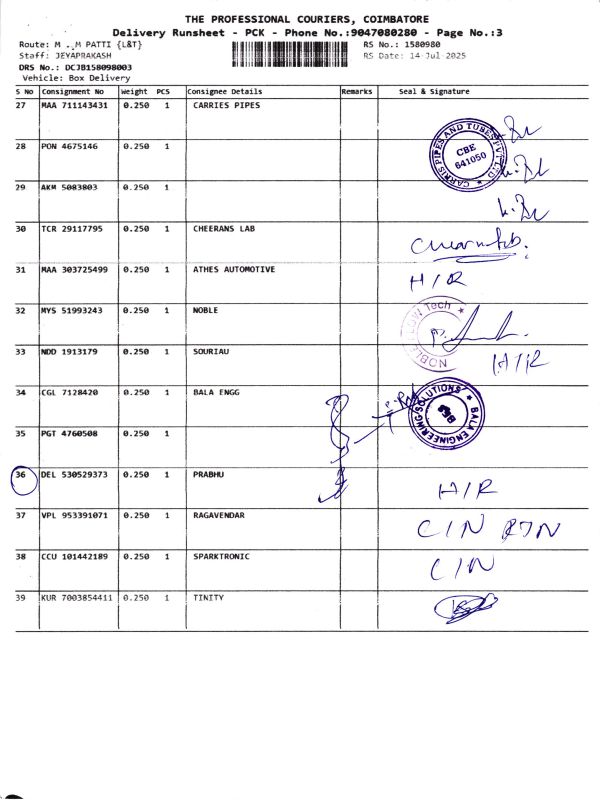 THE PROFESSIONAL COURIERS, COIMBATORE
Delivery Runsheet - PCK - Phone No.:9047080280 - Page No.:3
Route: M . M PATTI {L&T} RS No.: 1580980
Staff: JEYAPRAKASH RS Date: 14-Jul-2025
DRS No.: DCJB158098003
Vehicle: Box Delivery
S No Consignment No Weight PCS Consignee Details Remarks Seal & Signature
27 MAA 711143431 0.250 1 CARRIES PIPES
CARRIS PIPES AND TUBES PVT LTD
CBE
641050
28 PON 4675146 0.250 1
29 AKM 5083803 0.250 1
30 TCR 29117795 0.250 1 CHEERANS LAB
31 MAA 303725499 0.250 1 ATHES AUTOMOTIVE H/R
32 MYS 51993243 0.250 1 NOBLE
33 NDD 1913179 0.250 1 SOURIAU H/R
34 CGL 7128420 0.250 1 BALA ENGG
BALA ENGINEERING SOLUTIONS
35 PGT 4760508 0.250 1
36 DEL 530529373 0.250 1 PRABHU H/R
37 VPL 953391071 0.250 1 RAGAVENDAR C/N RTN
38 CCU 101442189 0.250 1 SPARKTRONIC C/N
39 KUR 7003854411 0.250 1 TINITY